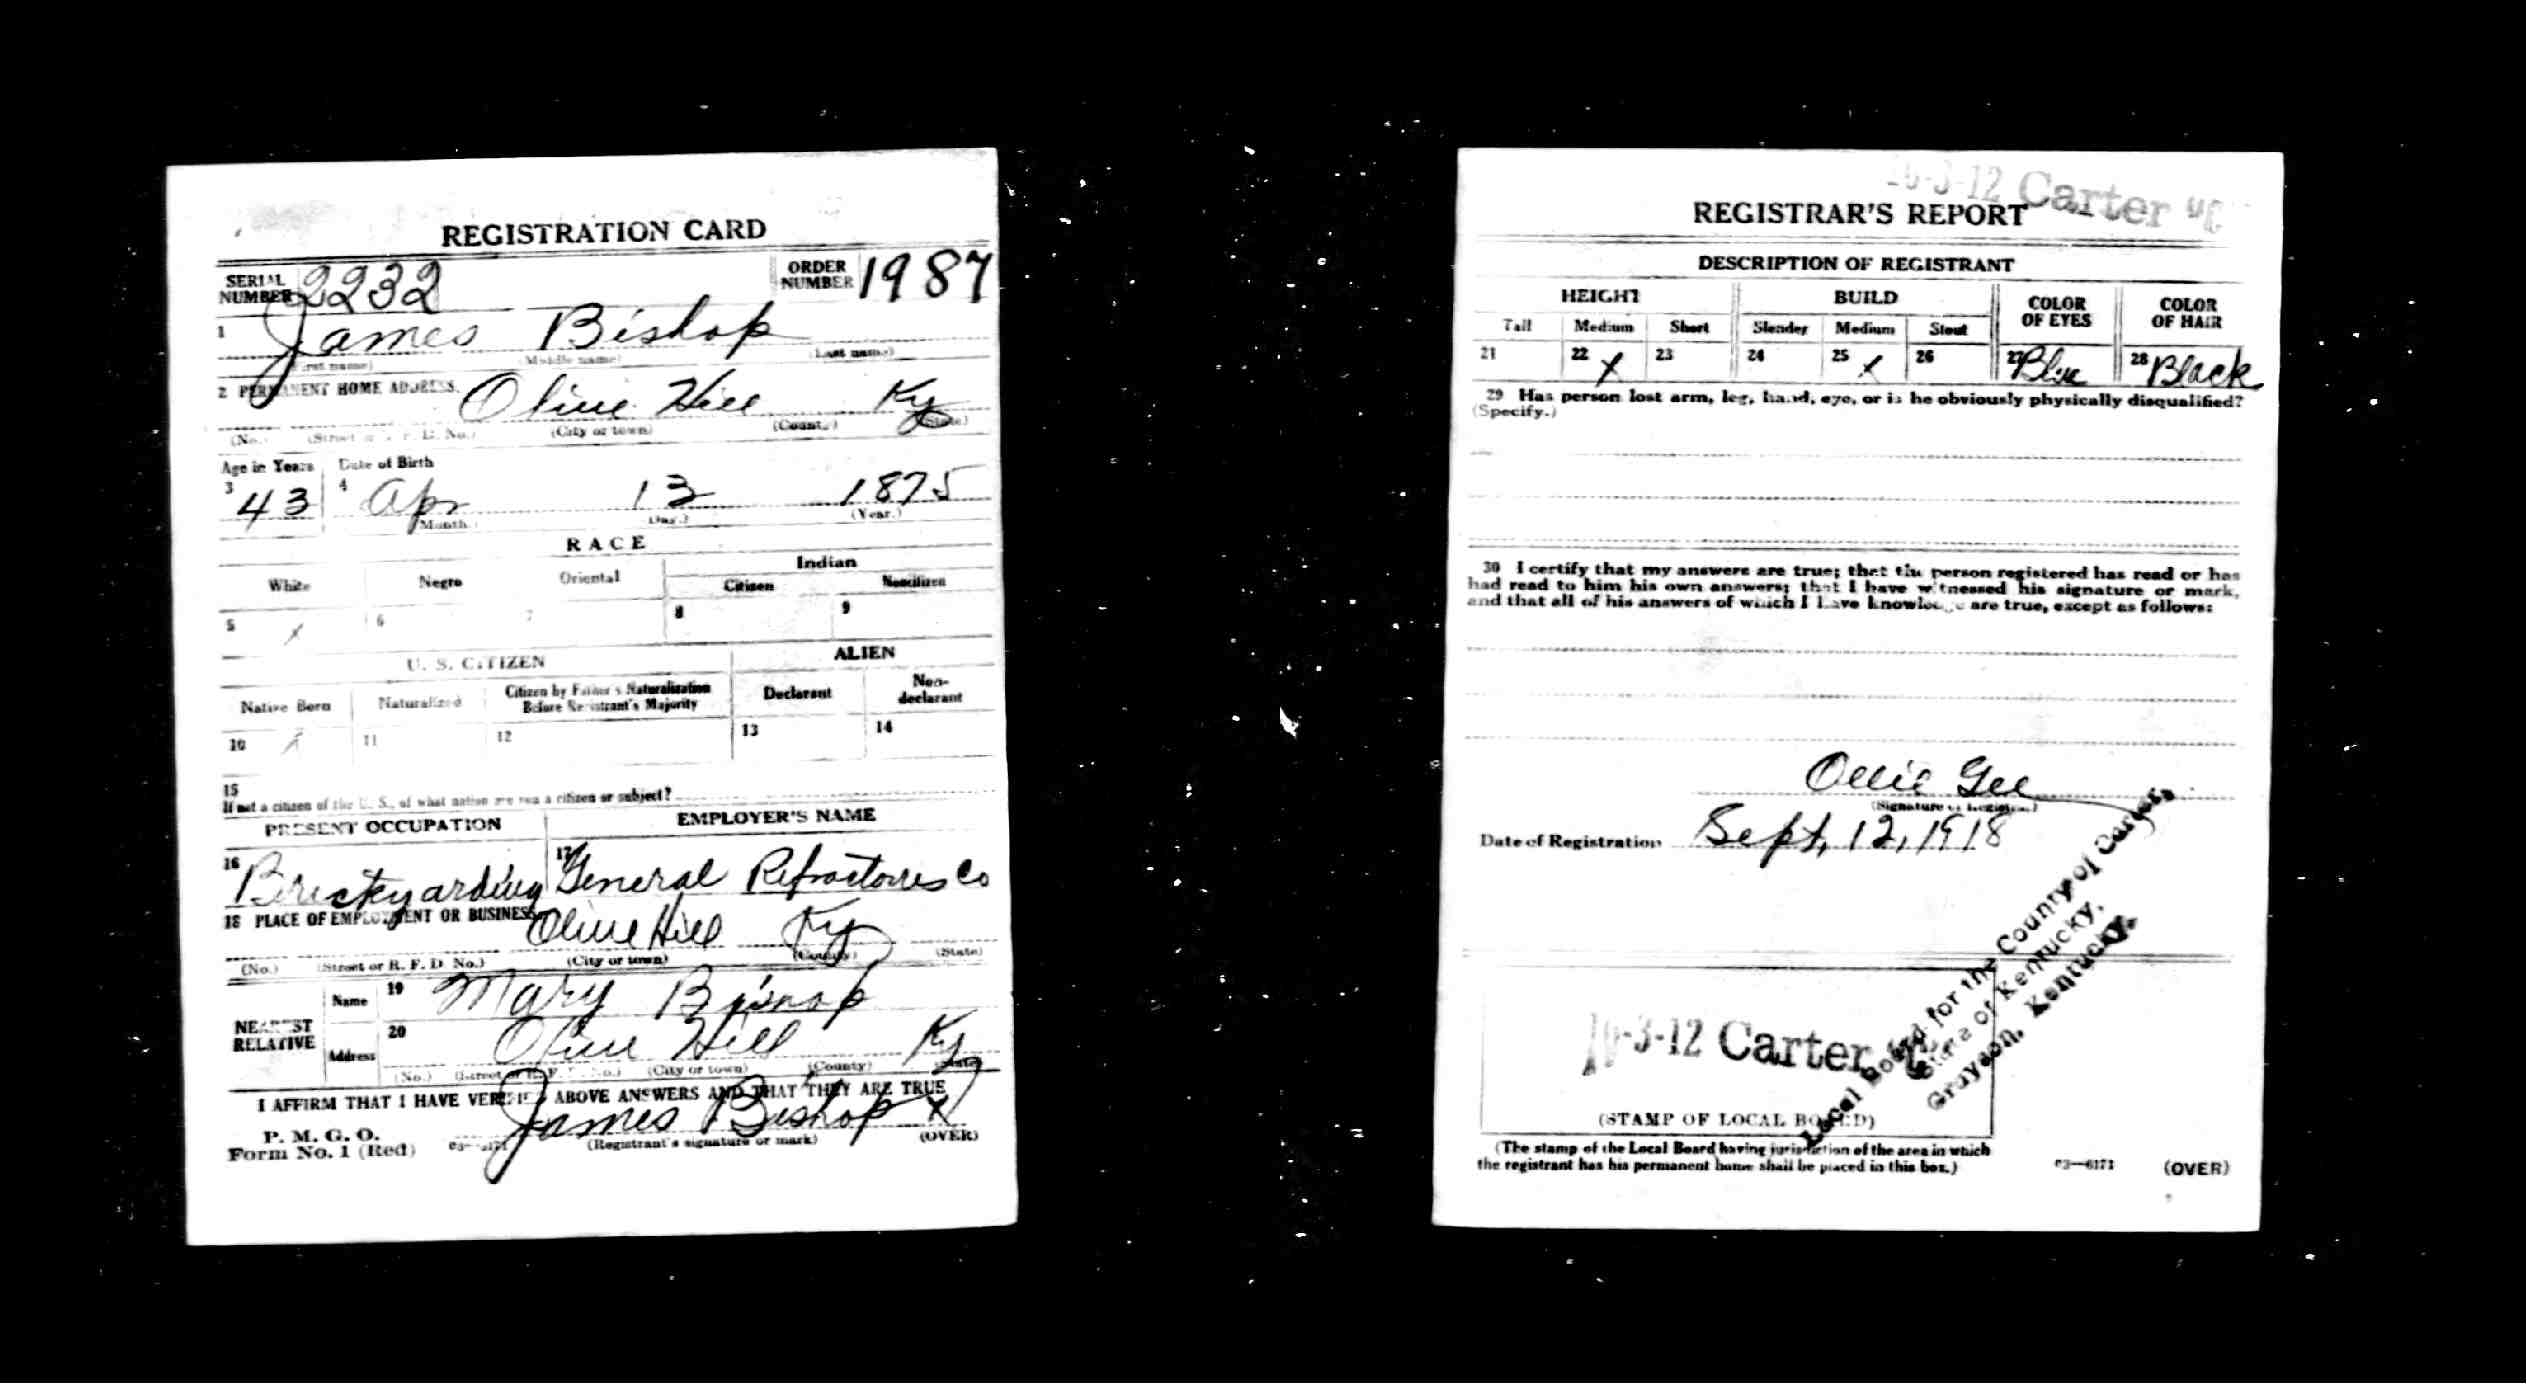 REGISTRATION CARD
SERIAL NUMBER 2232 ORDER NUMBER 1987
1 James Bishop
(First name) (Middle name) (Last name)
2 PERMANENT HOME ADDRESS. Olive Hill Ky
(No.) (Street or R. F. D. No.) (City or town) (County) (State)
Age in Years Date of Birth
3 43 4 Apr 13 1875
(Month.) (Day.) (Year.)
RACE
White Negro Oriental Indian
Citizen Noncitizen
5 x 6 7 8 9
U. S. CITIZEN ALIEN
Native Born Naturalized Citizen by Father's Naturalization Before Registrant's Majority Declarant Non-declarant
10 x 11 12 13 14
15
If not a citizen of the U. S., of what nation are you a citizen or subject?
PRESENT OCCUPATION EMPLOYER'S NAME
16 Brickyarding 17 General Refractories Co
18 PLACE OF EMPLOYMENT OR BUSINESS Olive Hill Ky
(No.) (Street or R. F. D. No.) (City or town) (County) (State)
NEAREST RELATIVE Name 19 Mary Bishop
Address 20 Olive Hill Ky
(No.) (Street or R. F. D. No.) (City or town) (County) (State)
I AFFIRM THAT I HAVE VERIFIED ABOVE ANSWERS AND THAT THEY ARE TRUE
P. M. G. O.
Form No. 1 (Red) 03—6171 James Bishop x
(Registrant's signature or mark) (OVER)
10-3-12 Carter
REGISTRAR'S REPORT
DESCRIPTION OF REGISTRANT
HEIGHT BUILD COLOR OF EYES COLOR OF HAIR
Tall Medium Short Slender Medium Stout
21 22 x 23 24 25 x 26 27 Blue 28 Black
29 Has person lost arm, leg, hand, eye, or is he obviously physically disqualified?
(Specify.)
30 I certify that my answers are true; that the person registered has read or has
had read to him his own answers; that I have witnessed his signature or mark,
and that all of his answers of which I have knowledge are true, except as follows:
Ollie Gee
(Signature of Registrar)
Date of Registration Sept, 12, 1918
Local Board for the County of Carter,
State of Kentucky,
Grayson, Kentucky.
10-3-12 Carter
(STAMP OF LOCAL BOARD)
(The stamp of the Local Board having jurisdiction of the area in which
the registrant has his permanent home shall be placed in this box.)
03—6171 (OVER)